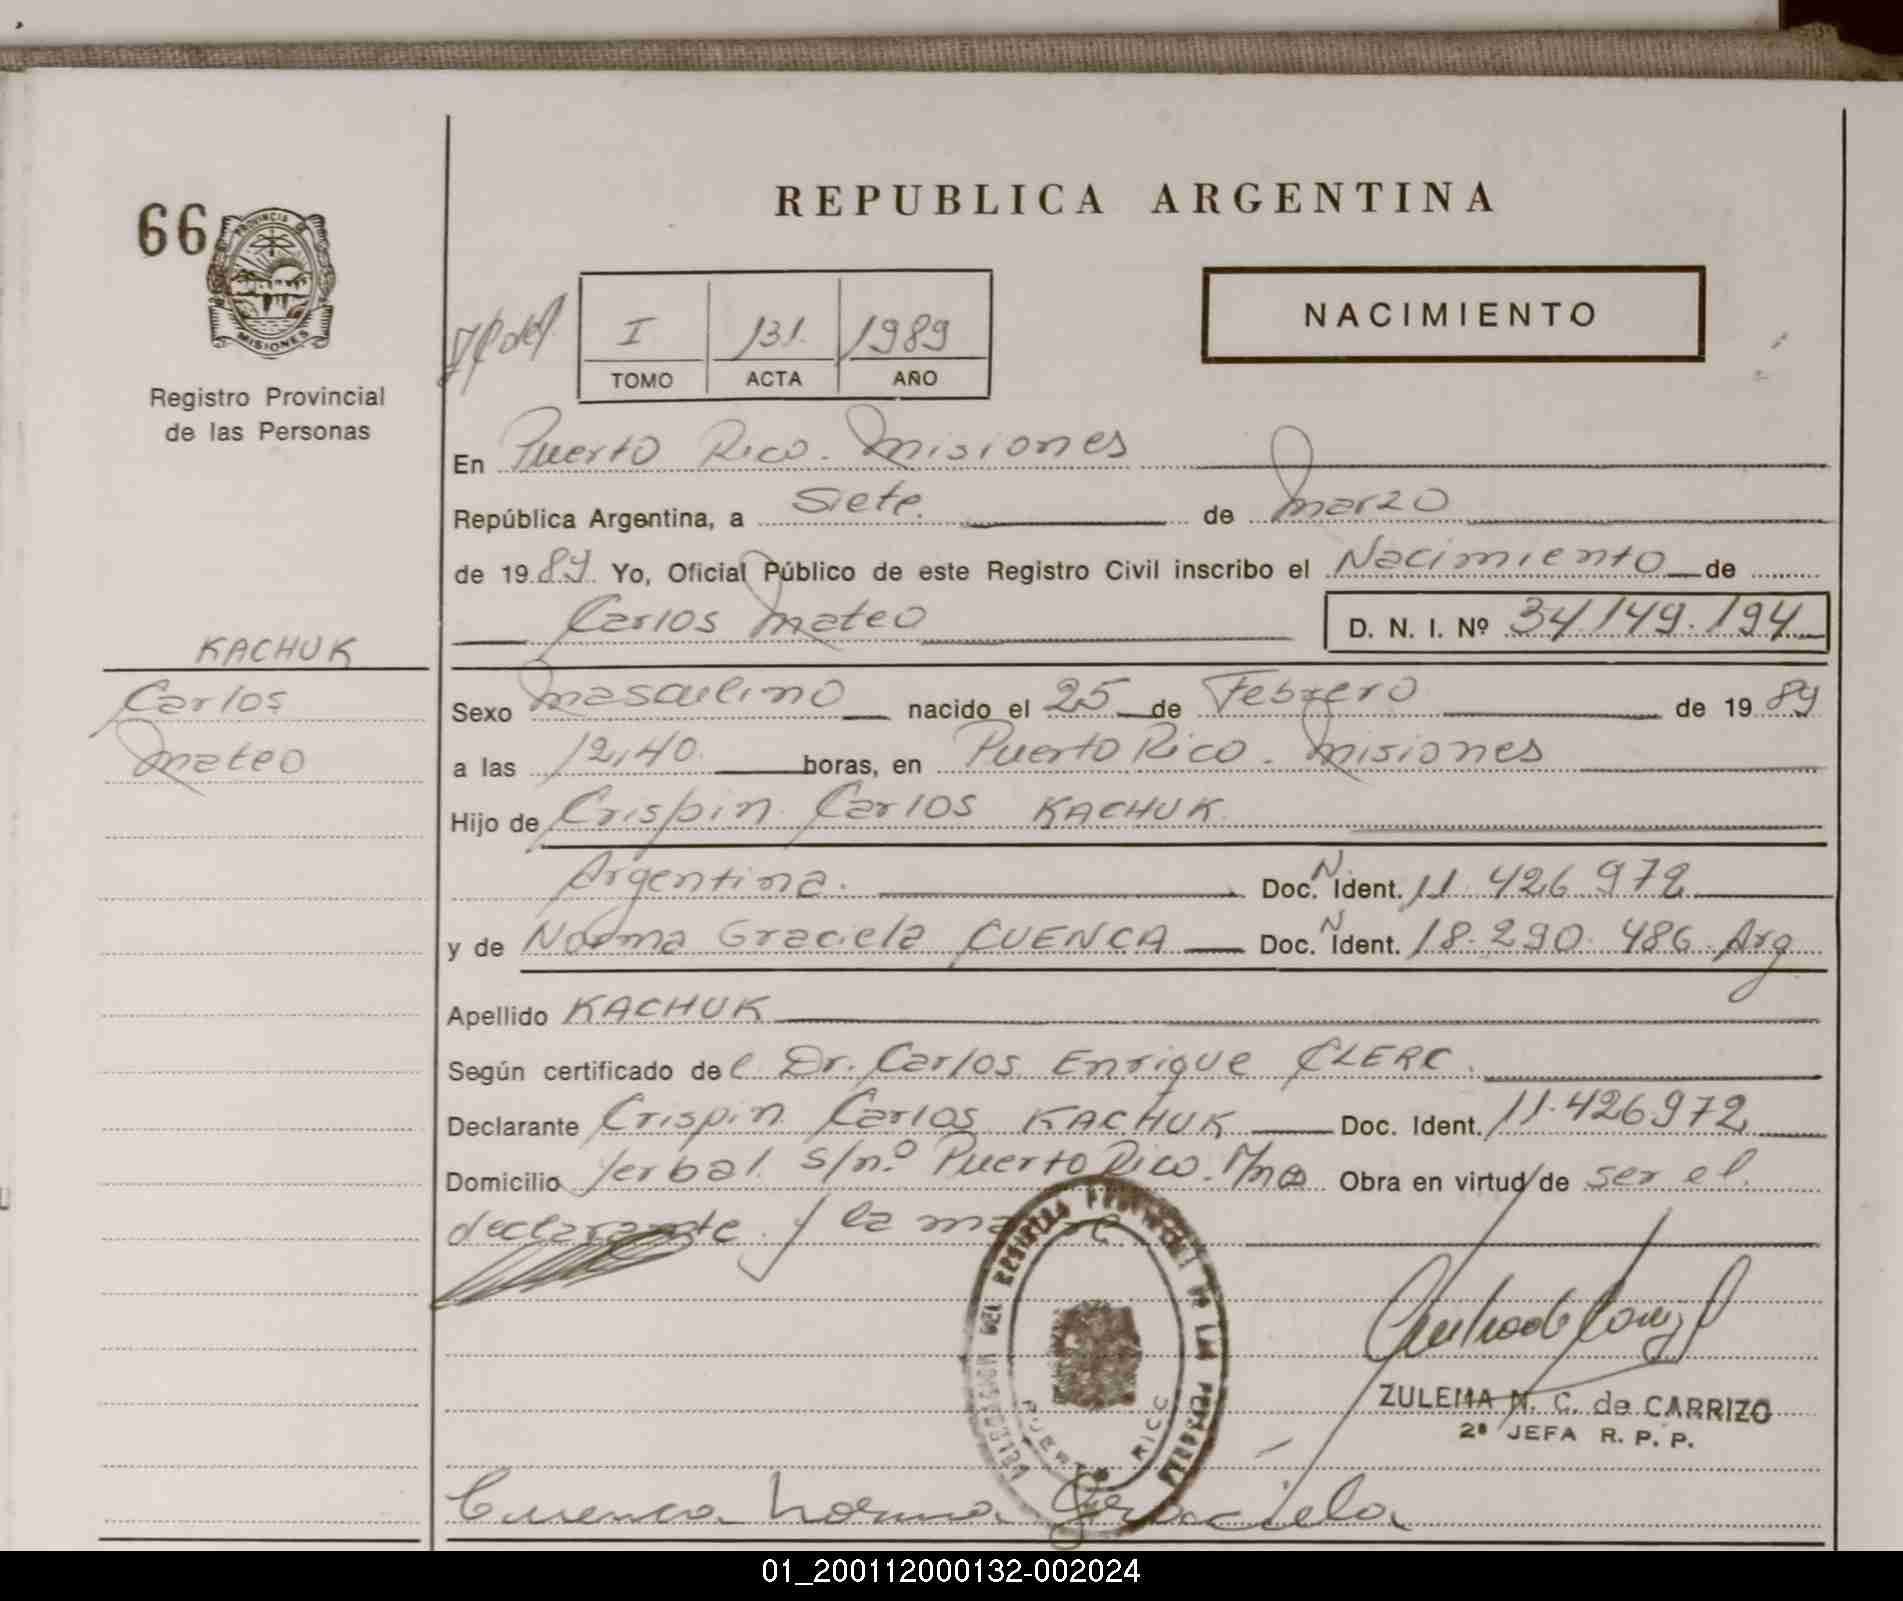 66
PROVINCIA DE
MISIONES
Registro Provincial
de las Personas
KACHUK
Carlos
Mateo
REPUBLICA ARGENTINA
NACIMIENTO
I 131. 1989
TOMO ACTA AÑO
En Puerto Rico. Misiones
República Argentina, a Siete. de Marzo
de 19 89 Yo, Oficial Público de este Registro Civil inscribo el Nacimiento de
Carlos Mateo D. N. I. Nº 34.149.194
Sexo Masculino nacido el 25 de Febrero de 19 89
a las 12,40. horas, en Puerto Rico. Misiones
Hijo de Crispin Carlos KACHUK
Argentina. Doc. N. Ident. 11.426.972
y de Norma Graciela CUENCA Doc. N Ident. 18.290.486 Arg
Apellido KACHUK
Según certificado del Dr. Carlos Enrique CLERC.
Declarante Crispin Carlos KACHUK Doc. Ident. 11.426972
Domicilio Yerbal s/n.º Puerto Rico. Mnes Obra en virtud de ser el
declarante y la madre
DELEGACION DEL REGISTRO PROVINCIAL DE LAS PERSONAS
PUERTO RICO
ZULEMA N. C. de CARRIZO
2ª JEFA R. P. P.
Cuenca Norma Graciela
01_200112000132-002024